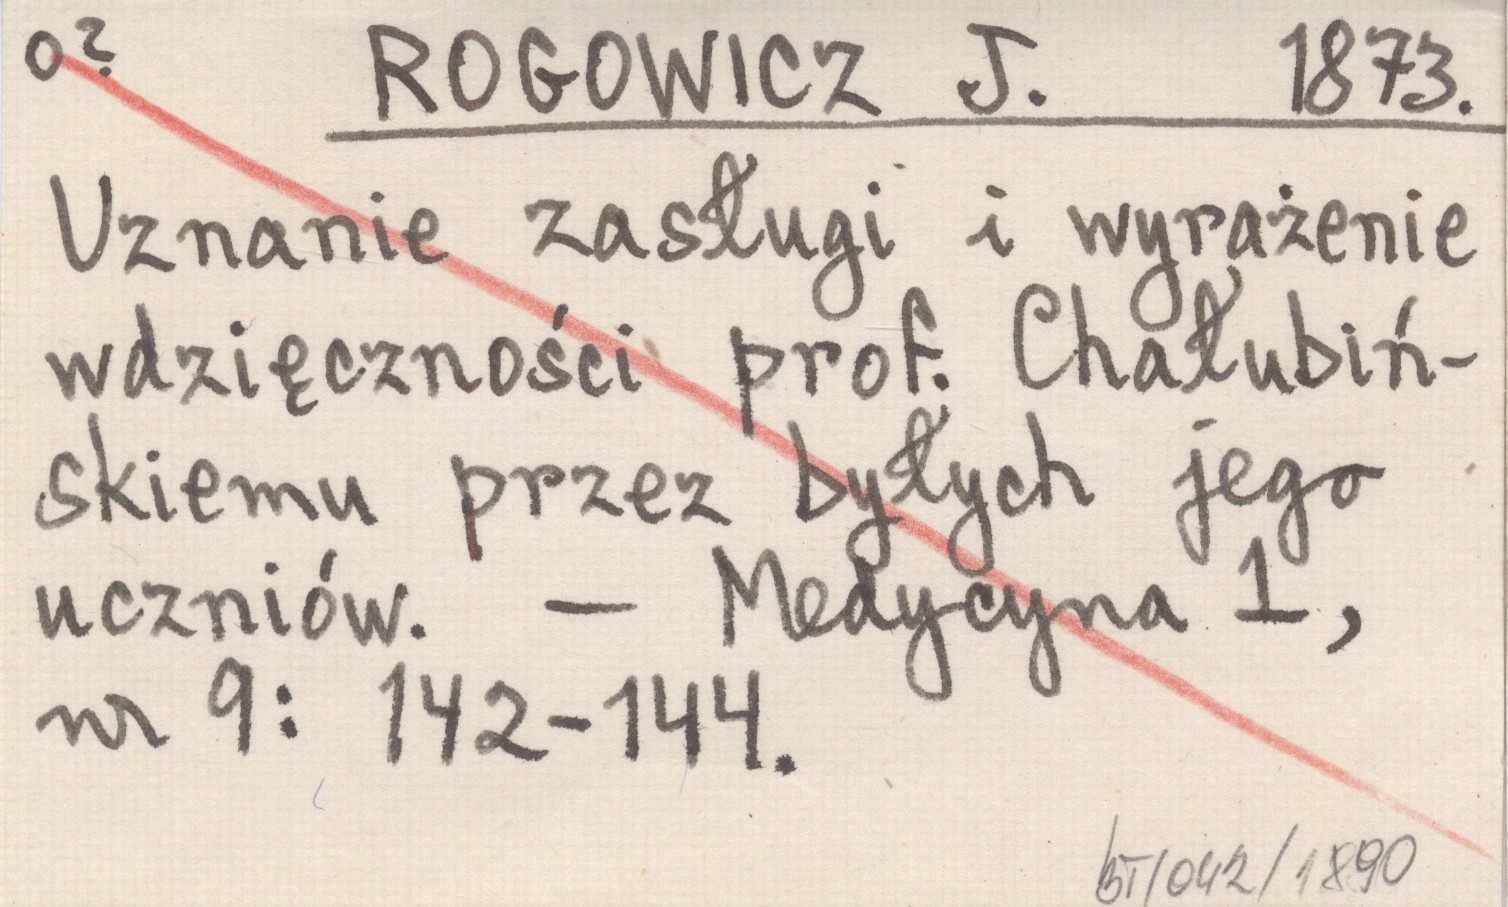 o?
ROGOWICZ J. 1873.
Uznanie zasługi i wyrażenie
wdzięczności prof. Chałubiń-
skiemu przez byłych jego
uczniów. — Medycyna 1,
nr 9: 142-144.
BT/042/1890